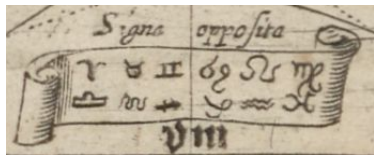 Signa oppoſita
♈ ♉ ♊ ♋ ♌ ♍
♎ ♏ ♐ ♑ ♒ ♓
VIII